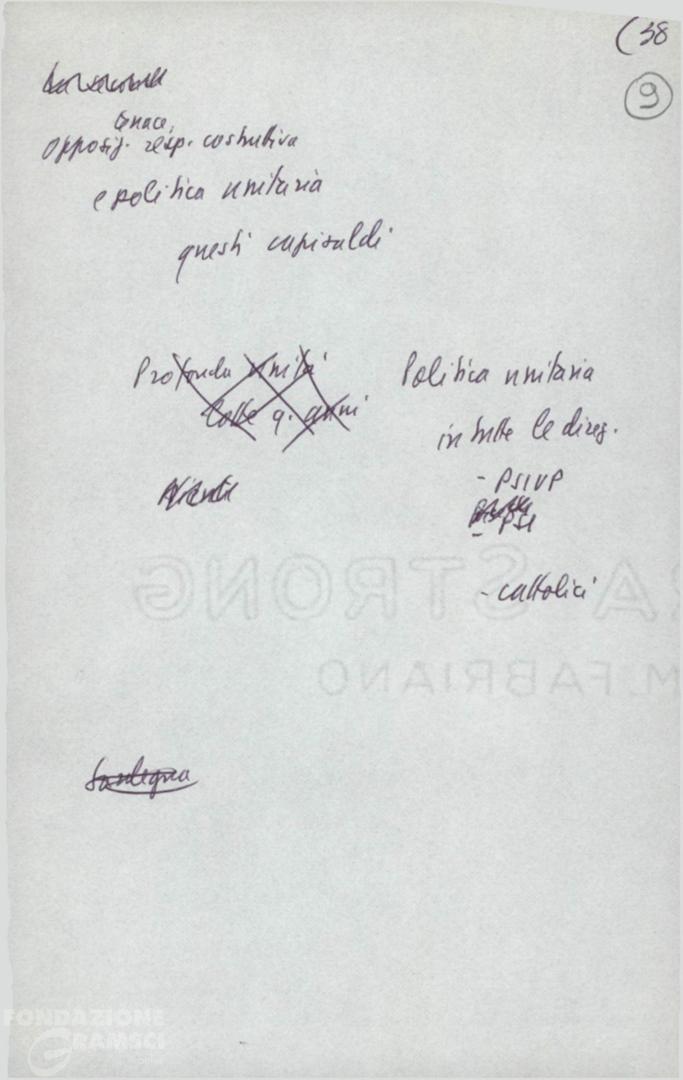 (38
9
opposiz. resp. costruttiva
e politica unitaria
questi capisaldi
Profonda unità
lotte q. anni
Politica unitaria
in tutte le direz.
- PSIUP
- PSI
- cattolici
Sardegna
A STRONG
M. FABRIANO
FONDAZIONE
GRAMSCI